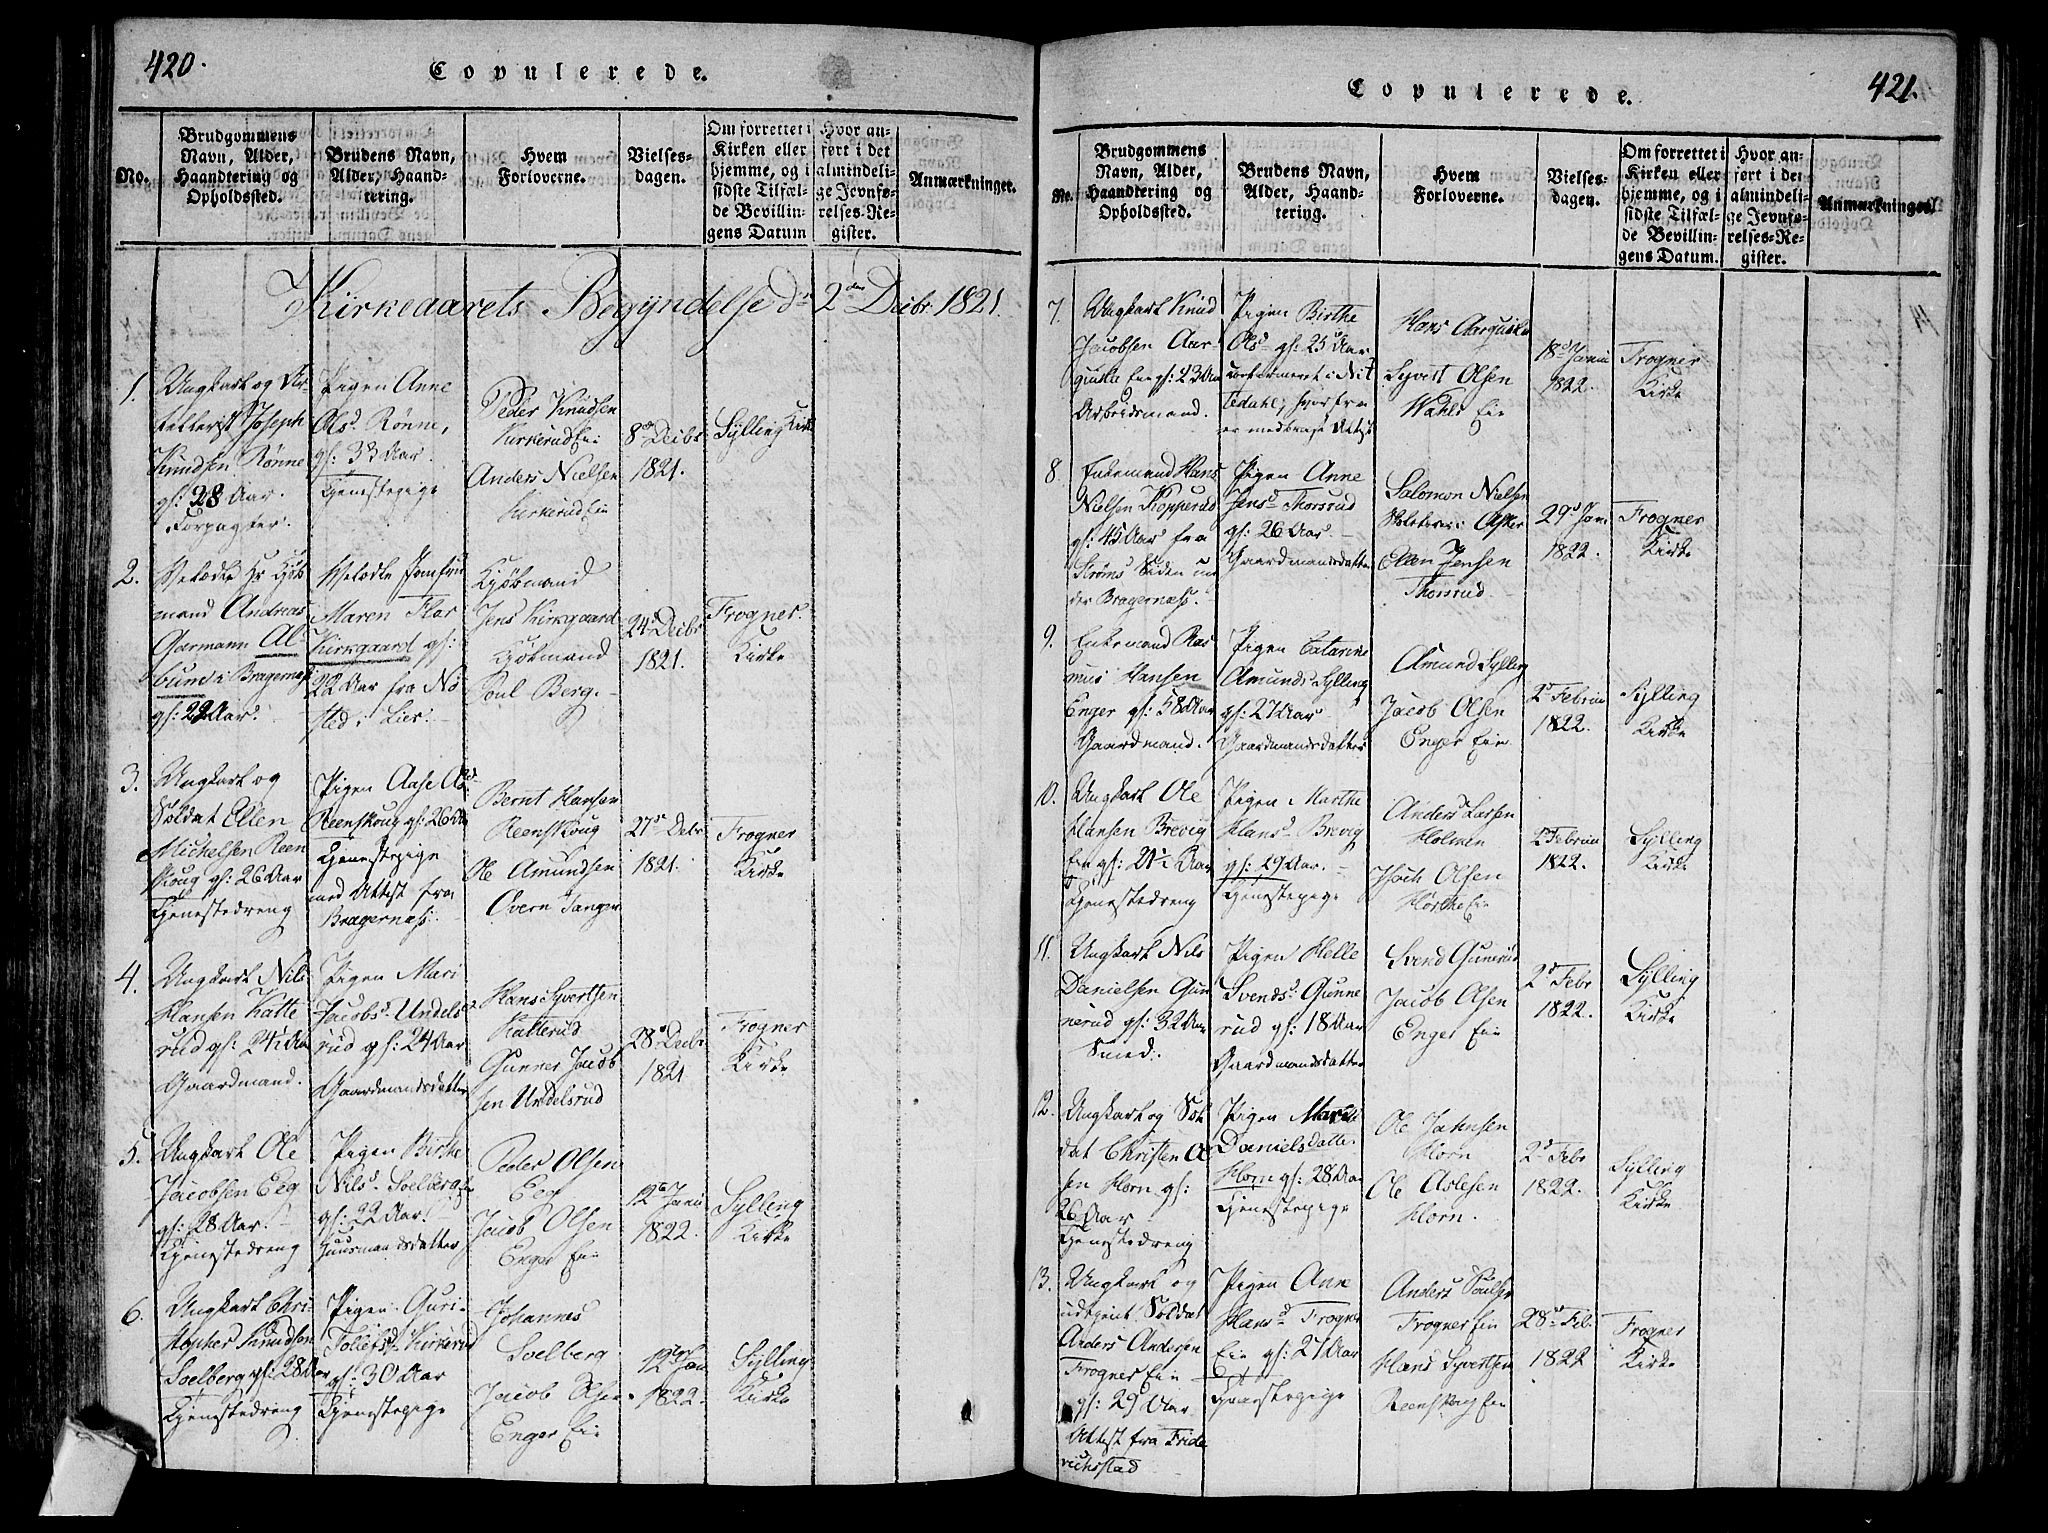 420.
Copulerede.
No.
Brudgommens
Navn, Alder,
Haandtering og
Opholdssted.
Brudens Navn,
Alder, Haand-
tering.
Hvem
Forloverne.
Vielses-
dagen.
Om forrettet i
Kirken eller
hjemme, og i
sidste Tilfæl-
de Bevillin-
gens Datum
Hvor an-
ført i det
almindeli-
ge Jevnfø-
relses-Re-
gister.
Anmærkninger.
Kirkeaarets Begÿndelse d. 2den Decbr 1821.
1.
Ungkarl og Ar-
tellerist Joseph
Knudsen Rönne
gl: 28 Aar.
Forpagter.
Pigen Anne
Olsd. Rönne,
gl: 33 Aar.
Tjenestepige
Peder Knudsen
Kirkerud Eie
Anders Nielsen
Kirkerud Eie
8de Decbr
1821.
Sÿlling Kirke
2.
Velædle Hr Kjöb
mand Andreas
Garmann Al-
bum i Bragernæs
gl: 22 Aar.
Velædle Jomfru
Maren Flor
Kirkgaard gl:
22 Aar fra Nö
sted i Lier.
Kjöbmand
Jens Kirkgaard
Kjöbmand
Poul Berg.
24. Decbr
1821.
Frogner
Kirke
3.
Ungkarl og
Soldat Ellen
Michelsen Reen
skoug gl: 26 Aar
Tjenestedreng
Pigen Aase Asd.
Reenskoug gl: 26 Aar
Tjenestepige
med Attest fra
Bragernæs.
Bernt Hansen
Reenskoug
Ole Amundsen
Overn Tanger
27de Debr
1821.
Frogner
Kirke
4.
Ungkarl Nils
Hansen Katte
rud gl: 24½ Aar
Gaardmand.
Pigen Mari
Jacobsd. Undels
rud gl: 24 Aar
Gaardmandsdatter
Hans Syvertsen
Katterud
Gunner Jacob
sen Undelsrud
28de Decbr
1821
Frogner
Kirke
5.
Ungkarl Ole
Jacobsen Eeg
gl: 28 Aar.
Tjenestedreng
Pigen Birthe
Nilsd. Soelberg
gl: 22 Aar.
Huusmandsdatter
Peder Olsen
Eeg
Jacob Olsen
Enger Eie
12te Janu
1822.
Sylling
Kirke
6.
Ungkarl Chri-
stopher Knudsen
Soelberg gl: 28 Aar
Tjenestedreng
Pigen Guri
Tollefsd. Kirkerud
gl: 30 Aar
Tjenestepige
Johannes
Soelberg
Jacob Olsen
Enger Eie
12te Jan
1822.
Sylling
Kirke
421.
Copulerede.
No.
Brudgommens
Navn, Alder,
Haandtering og
Opholdssted.
Brudens Navn,
Alder, Haand-
tering.
Hvem
Forloverne.
Vielses-
dagen.
Om forrettet i
Kirken eller
hjemme, og i
sidste Tilfæl-
de Bevillin-
gens Datum.
Hvor an-
ført i det
almindeli-
ge Jevnfø-
relses-Re-
gister.
Anmærkninger.
7.
Ungkarl Knud
Jacobsen Aar-
Eie gl: 23 Aar
Arbeidsmand.
Pigen Birthe
Olsd. gl: 25 Aar
confirmeret i Nit
tedahl, hvorfra
er medbragt Attest
Hans
Syvert Olsen
Wahls Eie
18de Janu
1822.
Frogner
Kirke
8
Enkemand Hans
Nielsen Kopperud
gl: 45 Aar fra
Ströms Siden un
der Bragernæs.
Pigen Anne
Jensd. Thorsrud
gl: 26 Aar.
Gaardmandsdatter
Salomon Nielsen
Asker
Ellen Jensen
Thorsrud
29de Jan.
1822.
Frogner
Kirke
9.
Enkemand Ras
mus Hansen
Enger gl: 58 Aar
Gaardmand.
Pigen Catarine
Amunds. Sylling
gl: 27 Aar
Gaardmandsdatter
Amund Sylling
Jacob Olsen
Enger Eie
2d Februar
1822.
Sylling
Kirke
10.
Ungkarl Ole
Hansen Brevig
Eie gl: 21½ Aar
Tjenestedreng
Pigen Marthe
Hansd. Brevig
gl: 29 Aar.
Tjenestepige
Anders Larsen
Holmen
Isach Olsen
Hörthe Eie
2d Februar
1822.
Sylling
Kirke
11.
Ungkarl Nils
Danielsen Gun
nerud gl: 32 Aar
Smed.
Pigen Helle
Svendsd. Gunne
rud gl: 18 Aar
Gaardmandsdatter
Svend Gunerud
Jacob Olsen
Enger Eie
2d Febr
1822.
Sylling
Kirke
12.
Ungkarl og Sol
dat Christen Ol
sen Horn gl:
26 Aar
Tjenestedreng
Pigen Marthe
Danielsdatter
Horn gl: 28 Aar
Tjenestepige
Ole Jahnsen
Horn
Ole Aslesen
Horn.
2d Febr
1822.
Sylling
Kirke
13.
Ungkarl og
udtjent Soldat
Anders Andersen
Frogner Eie
gl: 29 Aar
Attest fra Fride
richstad
Pigen Anne
Hansd. Frogner
Eie gl: 27 Aar
Tjenestepige
Anders Poulsen
Frogner Eie
Hans Syvertsen
Reenskoug Eie
28de Feb.
1822
Frogner
Kirke